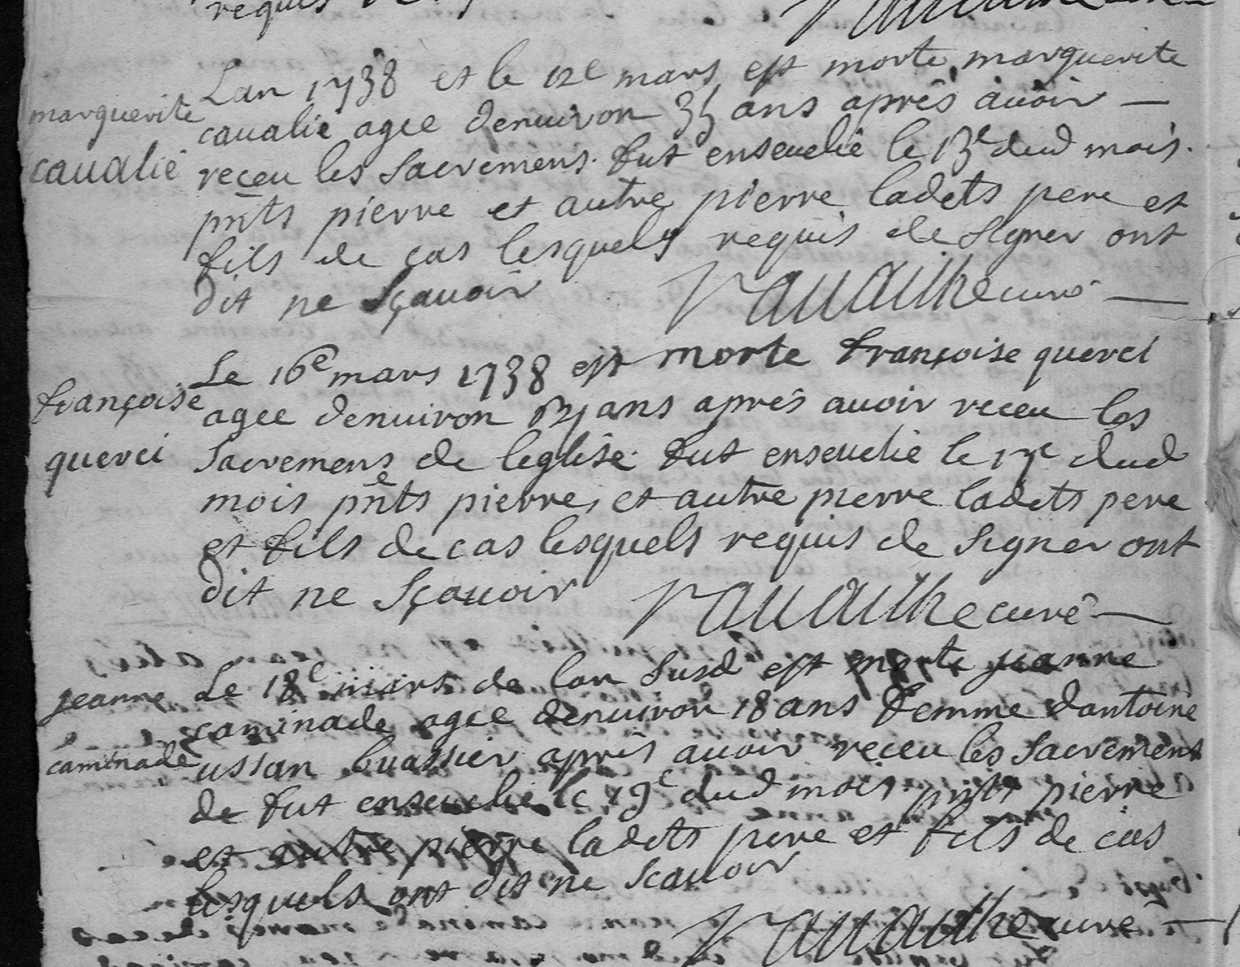 requis de
Lan 1738 et le 12e mars est morte marguerite
marguerite
caualié agee denuiron 35 ans aprés auoir
caualié
receu les Sacremens. fut enseuelie le 13e dud mois.
pñts pierre et autre pierre ladets pere et
fils de cas lesquels requis de signer ont
dit ne Sçauoir Vauailhe curé
Le 16e mars 1738 est morte françoise querci
françoise
agee denuiron ans aprés auoir receu les
querci
Sacremens de leglise. fut enseuelie le 17e dud
mois pñts pierre, et autre pierre ladets pere
et fils de cas lesquels requis de Signer ont
dit ne Sçauoir Vauailhe curé
Le 18e mars de lan Susd est morte jeanne
jeanne
caminade agee denuiron 18 ans femme dantoine
caminade
ussan buassier aprés auoir receu les Sacremens
de fut enseuelie le 19e dud mois. pñts pierre
et autre pierre ladets pere et fils de cas
lesquels ont dit ne Scauoir
Vauailhe curé